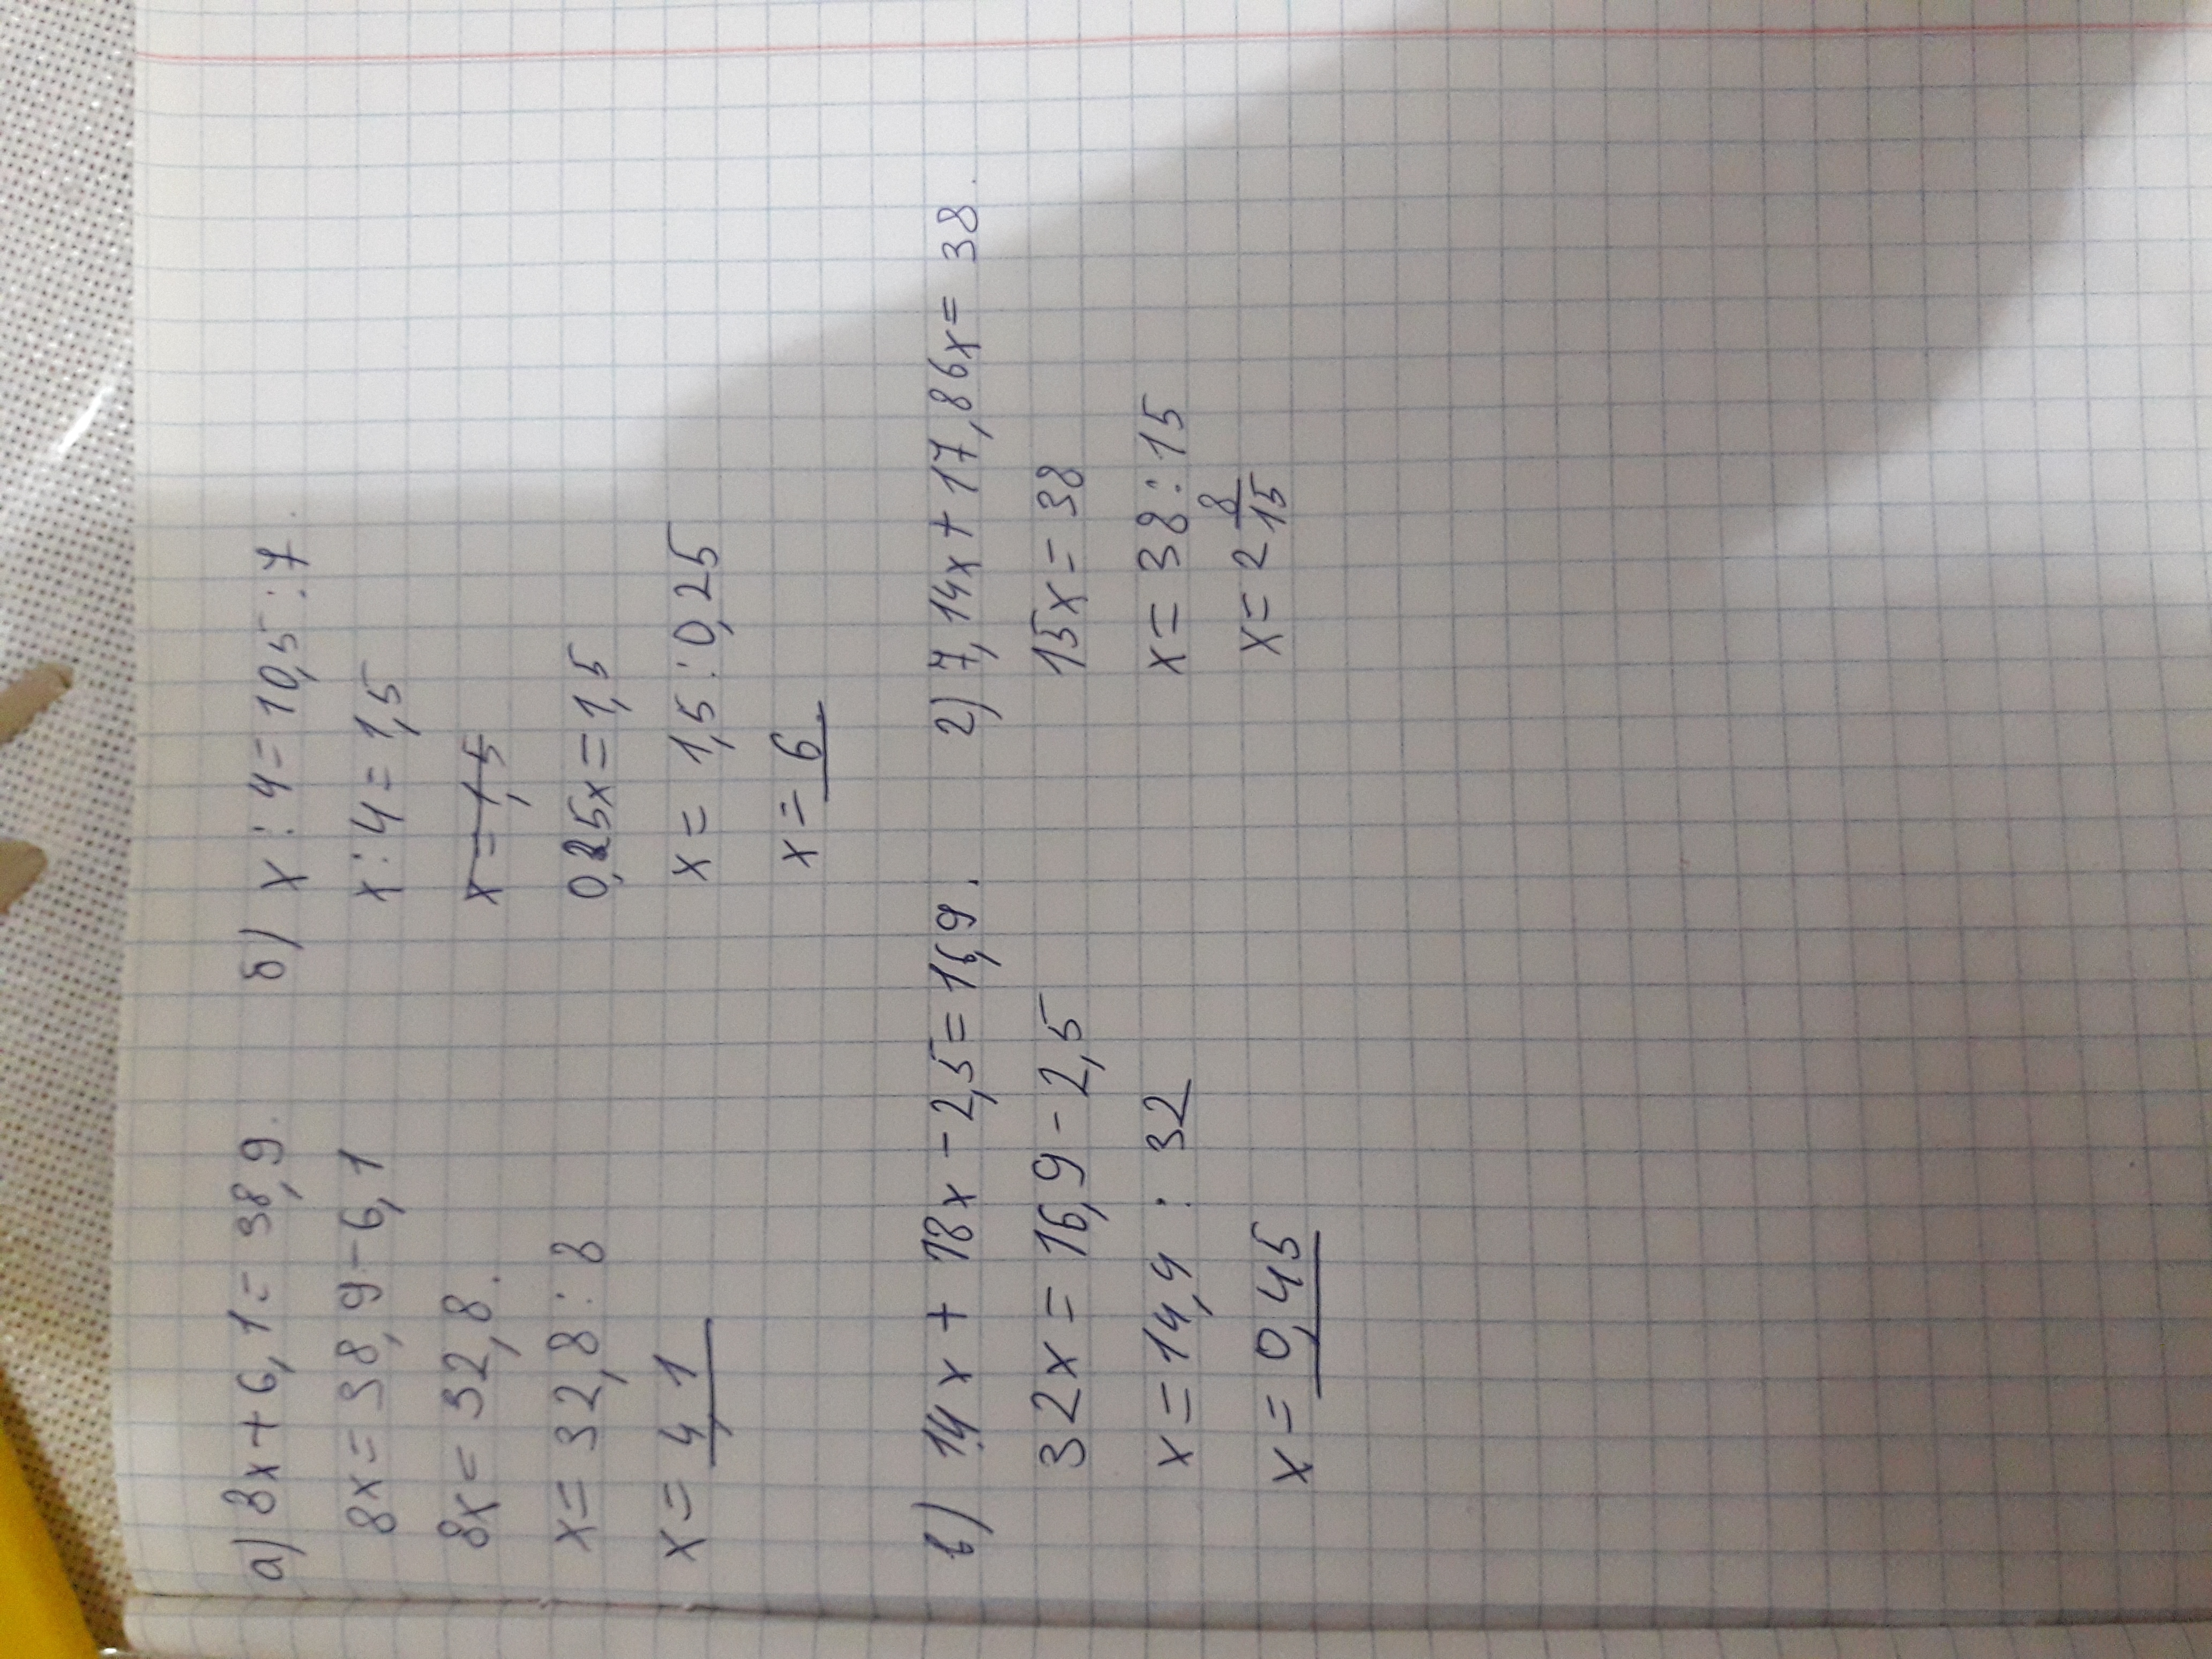 а) 8x + 6,1 = 38,9.
8x = 38,9 - 6,1
8x = 32,8.
x = 32,8 : 8
x = 4,1
б) x : 4 = 10,5 : 7.
x : 4 = 1,5
x = 1,5
0,25x = 1,5
x = 1,5 : 0,25
x = 6
в) 14x + 18x - 2,5 = 16,9.
32x = 16,9 - 2,5
x = 14,4 : 32
x = 0,45
г) 7,14x + 17,86x = 38.
15x = 38
x = 38 : 15
x = 2 8/15